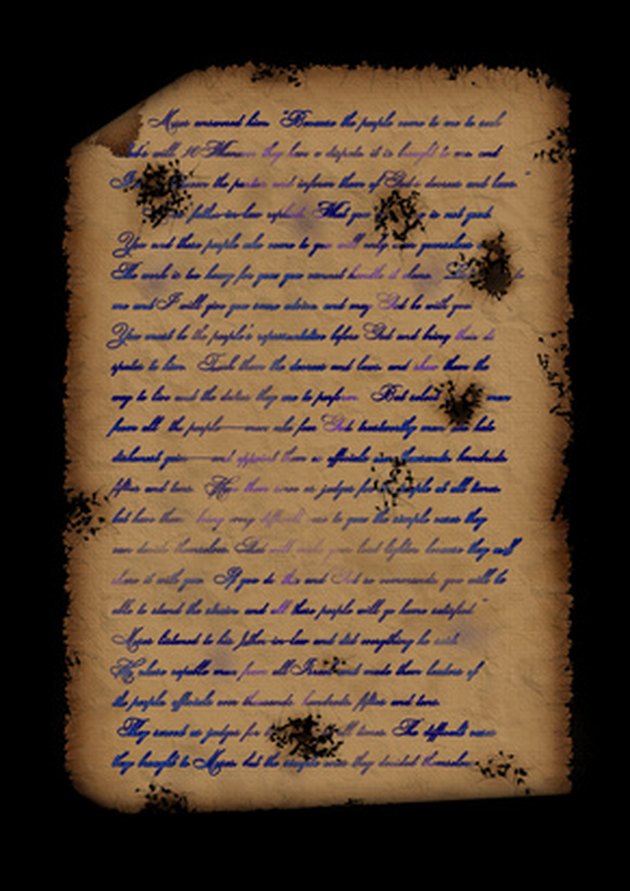 Moses answered him "Because the people come to me to seek
God's will. 16 Whenever they have a dispute it is brought to me and
I between the parties and inform them of God's decrees and laws."
father-in-law replied "What you is not good.
You and these people who come to you will only wear yourselves out
The work is too heavy for you you cannot handle it alone.
me and I will give you some advice and may God be with you
You must be the people's representative before God and bring their di
sputes to him. Teach them the decrees and laws and show them the
way to live and the duties they are to perform. But select men
from all the people—men who fear God trustworthy men who hate
dishonest gain—and appoint them as officials over thousands hundreds
fifties and tens. Have them serve as judges for people at all times
but have them bring every difficult case to you the simple cases they
can decide themselves That will make your load lighter because they will
share it with you. If you do this and God so commands you will be
able to stand the strain and all these people will go home satisfied"
Moses listened to his father-in-law and did everything he said.
He chose capable men from all Israel and made them leaders of
the people officials over thousands hundreds fifties and tens.
They served as judges for all times. The difficult cases
they brought to Moses but the simple ones they decided themselves.